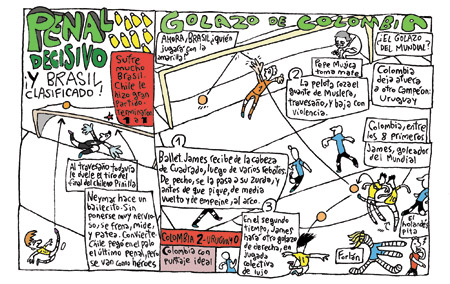 PENAL
DECISIVO
¡Y BRASIL
CLASIFICADO!
Sufre
mucho
Brasil.
Chile le
hizo gran
partido.
Terminaron
1 a 1
Al travesaño todavía
le duele el tiro del
final del chileno Pinilla
Neymar hace un
bailecito. Sin
ponerse muy nervio-
so, se frena, mide,
y patea. Convierte.
Chile pegó en el palo
el último penal, pero
se van como héroes
GOLAZO DE COLOMBIA
AHORA, BRASIL ¿quién
jugará con la
amarilla?
Pepe Mujica
toma mate
¡EL GOLAZO
DEL MUNDIAL!
2
La pelota roza el
guante de Muslera,
travesaño, y baja con
violencia.
Colombia
deja afuera
a otro Campeón:
Uruguay
Colombia, entre
los 8 primeros
James, goleador
del Mundial
1
Ballet. James recibe de la cabeza
de Cuadrado, luego de varios rebotes.
De pecho, se la pasa a su zurda, y
antes de que pique, de media
vuelta y de empeine, al arco.
COLOMBIA 2-URUGUAY 0
Colombia con
puntaje ideal
3
En el segundo
tiempo, James
hará otro golazo
de derecha, en
jugada
colectiva
de lujo
Forlán
El
holandés
pita